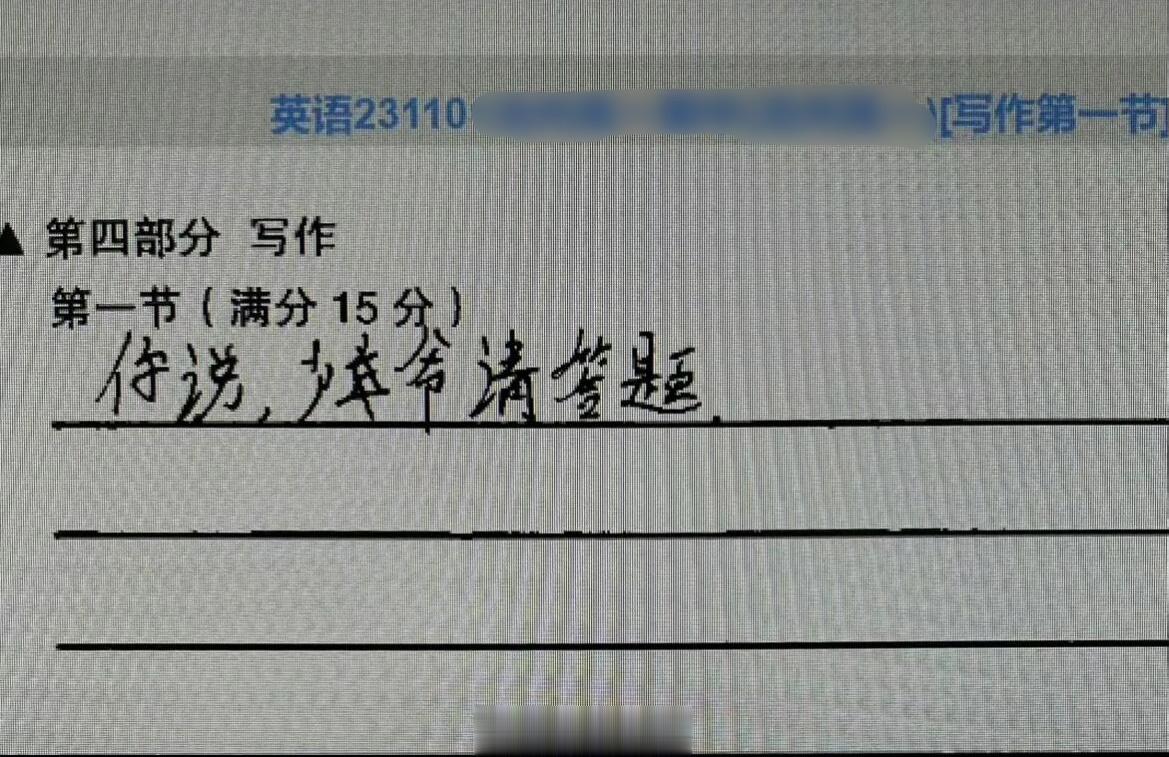 英语23110
)[写作第一节]
▲ 第四部分 写作
第一节(满分 15 分)
你说,少爷请答题.